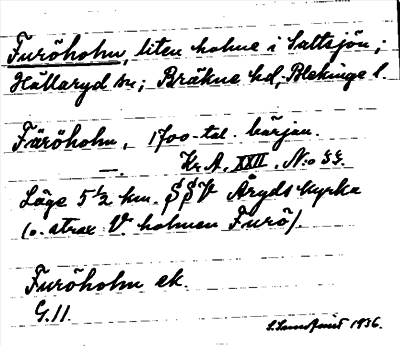 Furöholm, liten holme i Saltsjön;
Hällaryd sn; Bräkne hd, Blekinge l.
Färöholm, 1700-tal. början.
—. Kr. A. XXII. N:o 33.
Läge 5 1/2 km. SSV Åryds kyrka
(o. strax V. holmen Furö).
Furöholm ek.
G. 11.
1936.